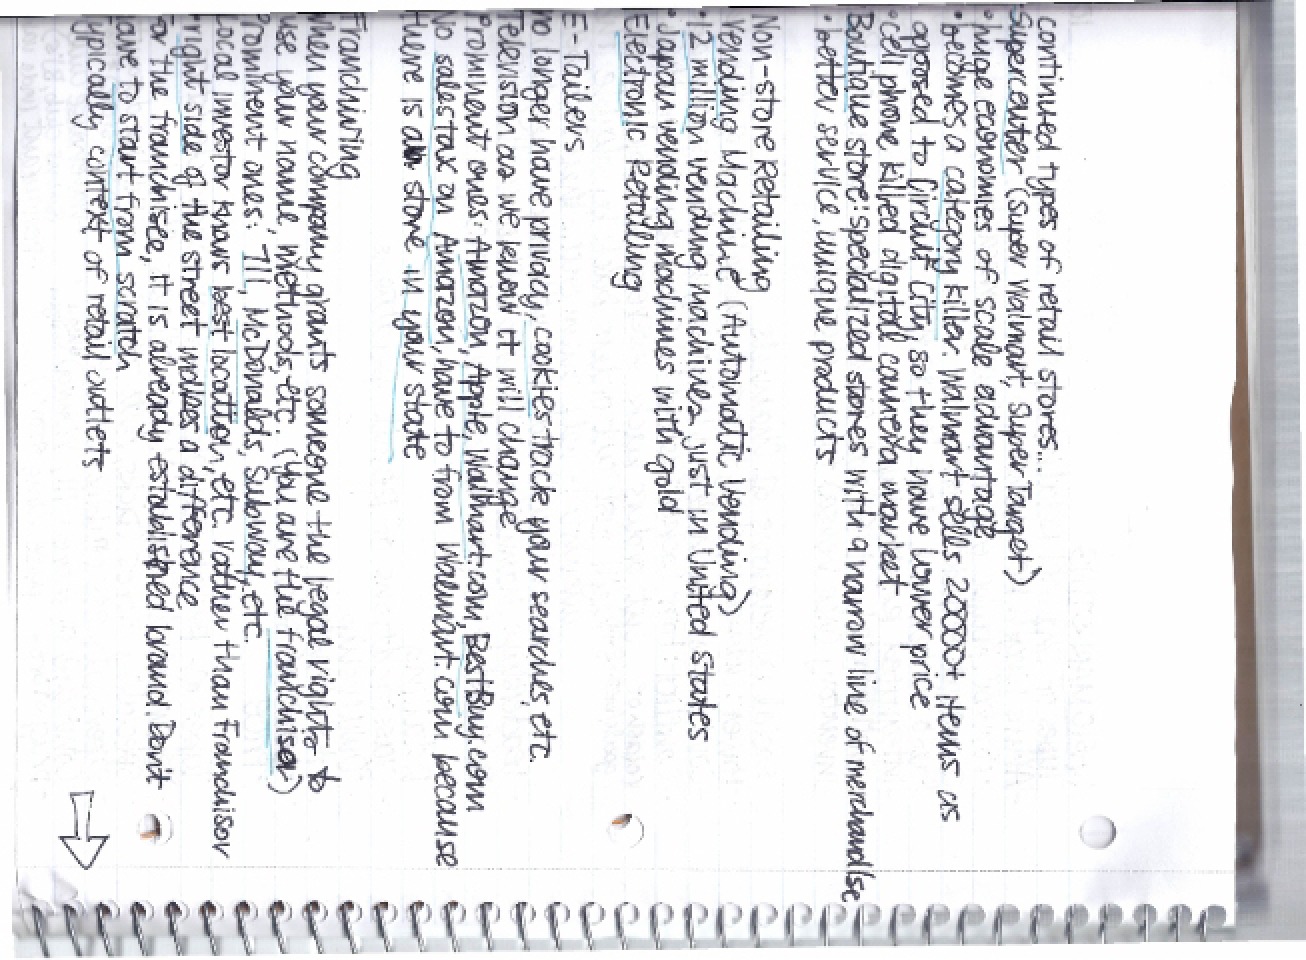 continued types of retail stores...
Supercenter (Super Walmart, Super Target)
• huge economies of scale advantage
• becomes a category killer. Walmart sells 200000+ items as
opposed to Circuit City, so they have lower price
• cell phone killed digital camera market
Boutique store: specialized stores with a narrow line of merchandise
• better service, unique products
Non-store Retailing
Vending Machine (Automatic Vending)
• 12 million vending machines just in United States
• Japan vending machines with gold
Electronic Retailing
E-Tailers
no longer have privacy, cookies track your searches, etc.
Television as we know it will change
Prominent ones: Amazon, Apple, Walmart.com, BestBuy.com
No sales tax on Amazon, have to from Walmart.com because
there is a store in your state
Franchising
When your company grants someone the legal right to
use your name, methods, etc. (you are the franchisor)
Prominent ones: 711, McDonalds, Subway, etc.
Local investor knows best location, etc. rather than Franchisor
• right side of the street makes a difference
For the franchisee, it is already established brand. Don't
have to start from scratch
typically context of retail outlets